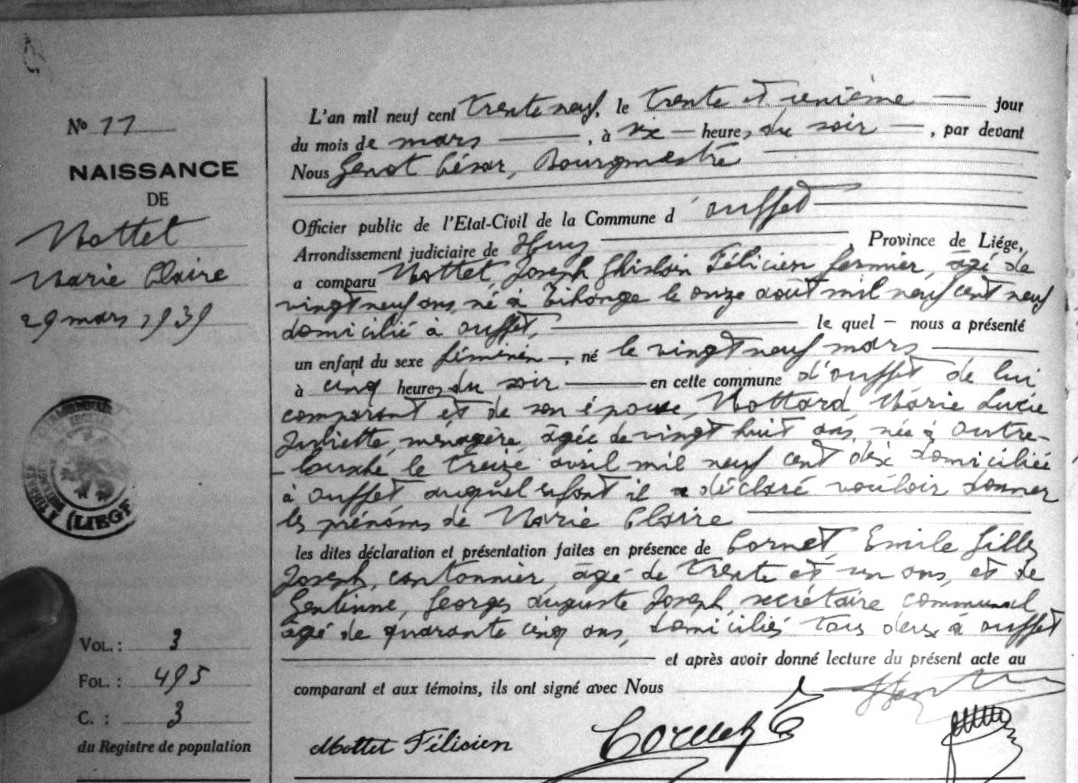 No 11
NAISSANCE
DE
Mottet
Marie Claire
29 mars 1939
(LIEGE
VOL.: 3
FOL.: 495
C.: 3
du Registre de population
L'an mil neuf cent trente neuf, le trente et unième jour
du mois de mars, à six heures du soir, par devant
Nous Genot César, Bourgmestre
Officier public de l'Etat-Civil de la Commune d'Ouffet
Arrondissement judiciaire de Huy, Province de Liége,
a comparu Mottet, Joseph Ghislain Félicien fermier, âgé de
vingt neuf ans, né à Tihange le onze août mil neuf cent neuf
domicilié à Ouffet, le quel – nous a présenté
un enfant du sexe féminin, né le vingt neuf mars
à cinq heures du soir en cette commune d'Ouffet de lui
comparant et de son épouse, Mottard Marie Lucie
Juliette, ménagère âgée de vingt huit ans, née à Outre-
le treize avril mil neuf cent dix domiciliée
à Ouffet auquel enfant il a déclaré vouloir donner
les prénoms de Marie Claire
les dites déclaration et présentation faites en présence de Cornet, Emile Gilles
Joseph, cantonnier, âgé de trente et un ans, et de
Gentinne, Georges Auguste Joseph, secrétaire communal,
âgé de quarante cinq ans, domiciliés tous deux à Ouffet
et après avoir donné lecture du présent acte au
comparant et aux témoins, ils ont signé avec Nous
Mottet Félicien Cornet E